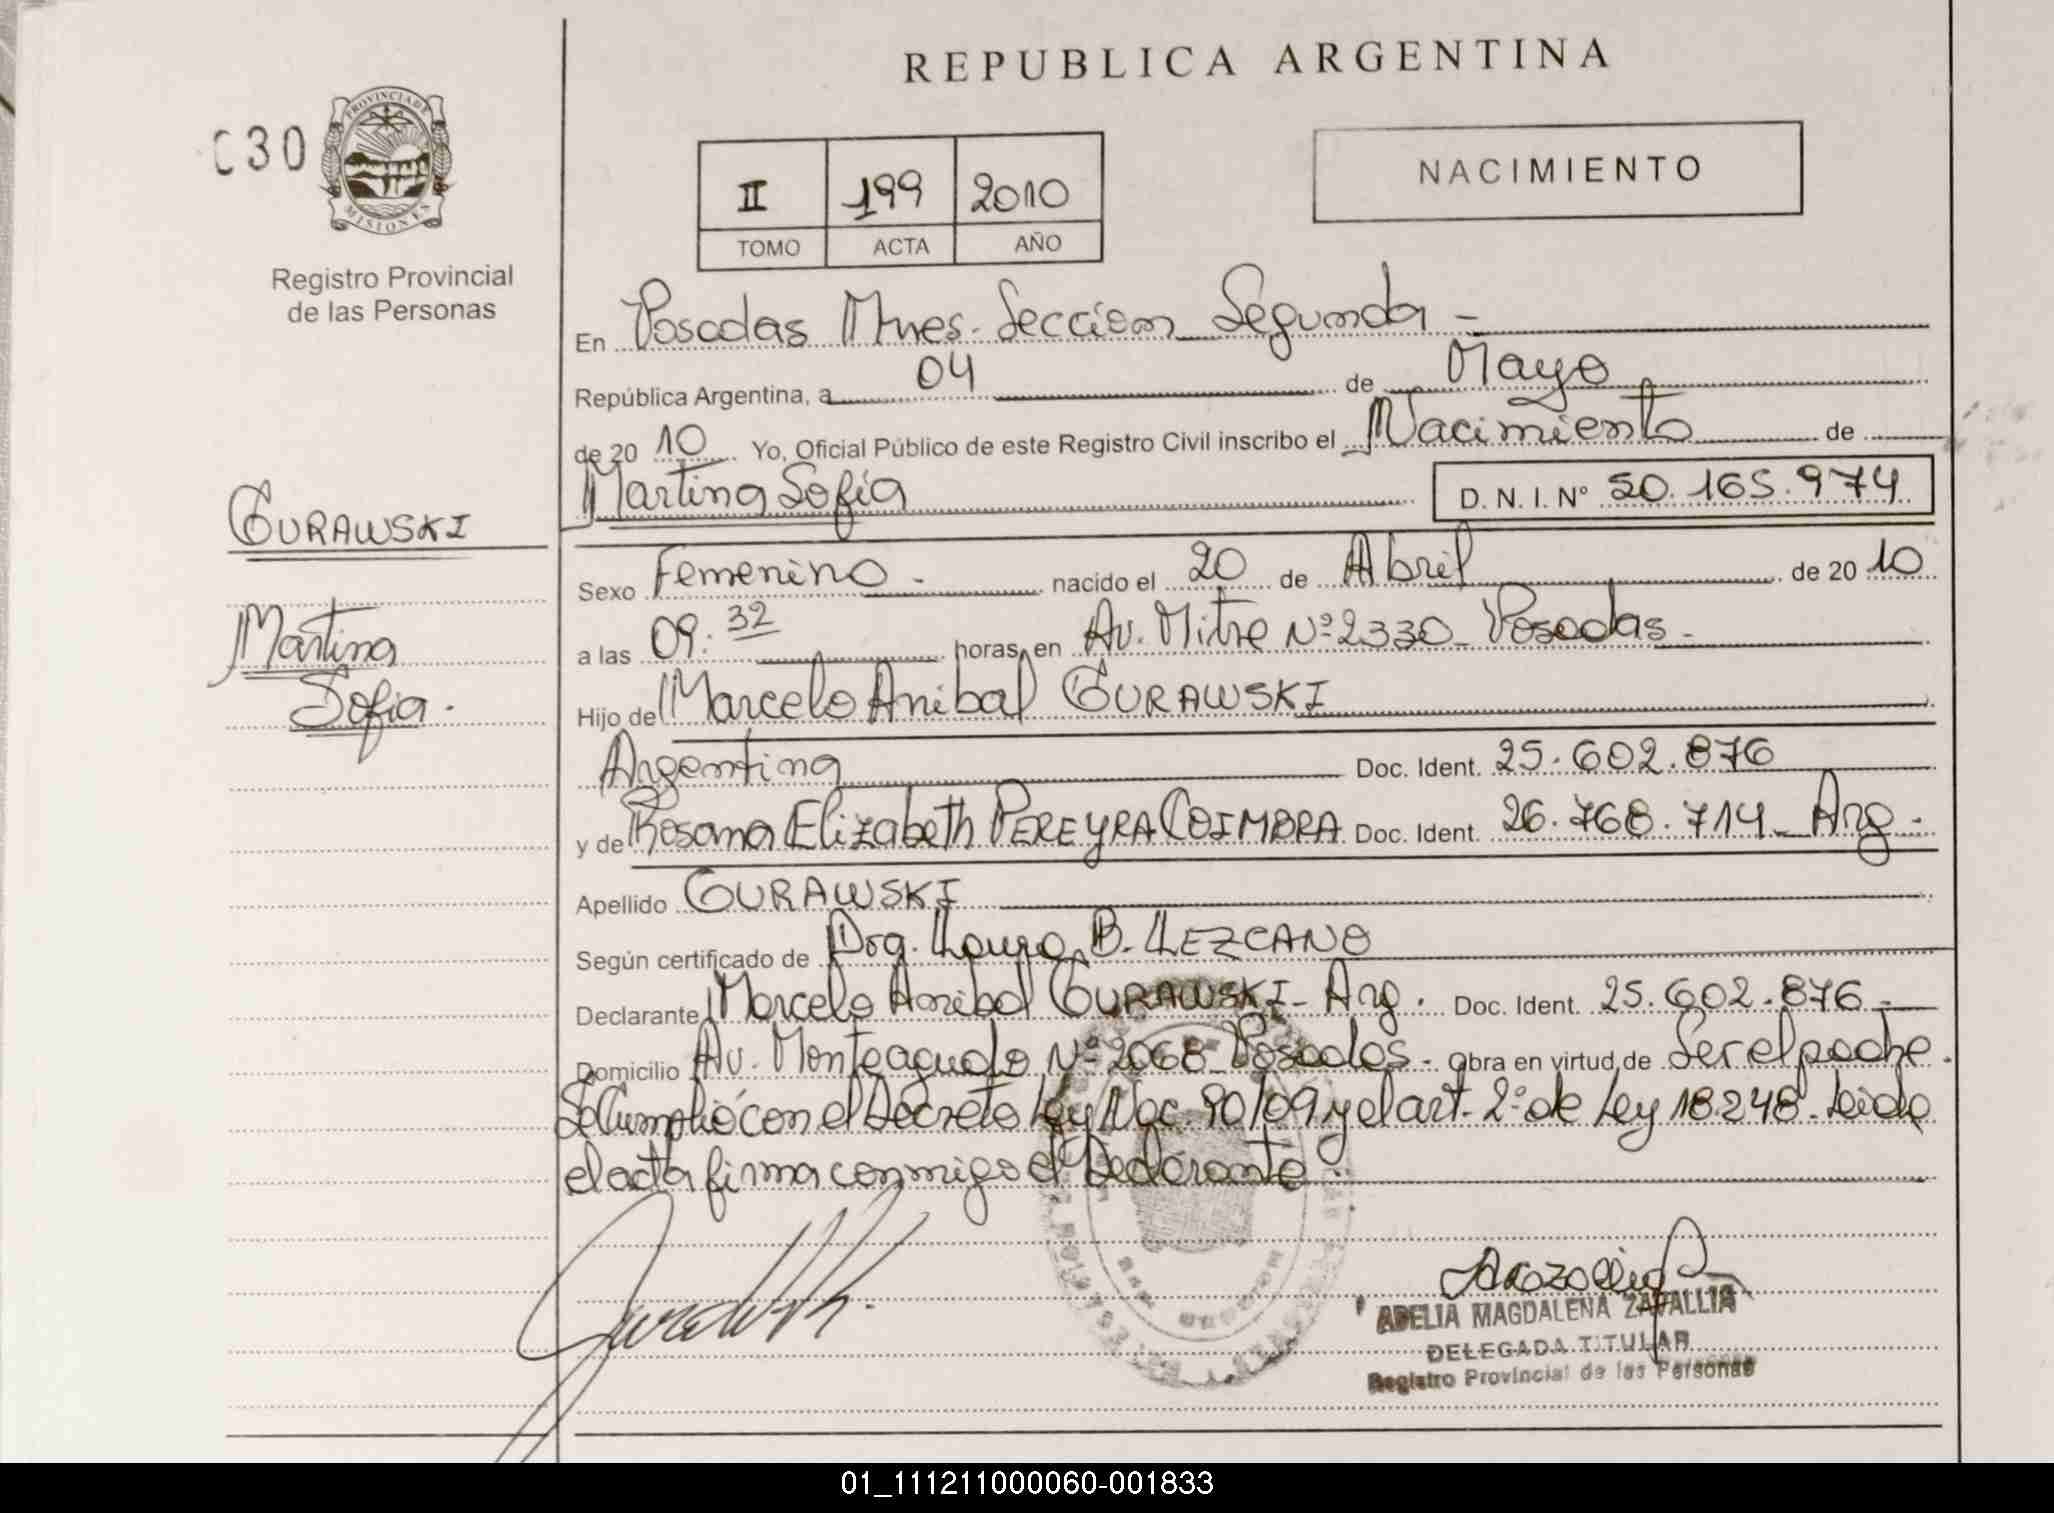 REPUBLICA ARGENTINA
C30
PROVINCIA DE
MISIONES
Registro Provincial
de las Personas
II 199 2010
TOMO ACTA AÑO
NACIMIENTO
En Posadas Mnes. Seccion Segunda -
República Argentina, a 04 de Mayo
de 20 10 Yo, Oficial Público de este Registro Civil inscribo el Nacimiento de
Martina Sofía D. N. I. Nº 50.165.974
GURAWSKI
Martina
Sofia.
Sexo Femenino. nacido el 20 de Abril de 20 10
a las 09:32 horas, en Av. Mitre Nº 2330 - Posadas -
Hijo de Marcelo Anibal GURAWSKI
Argentina Doc. Ident. 25.602.876
y de Rosana Elizabeth PEREYRA COIMBRA Doc. Ident. 26.768.714 - Arg.
Apellido GURAWSKI
Según certificado de B. LEZCANO
Declarante Marcelo Anibal GURAWSKI - Arg. Doc. Ident. 25.602.876 -
Domicilio Av. Monteagudo Nº 2068 - Posadas - Obra en virtud de Ser el padre.
Se Cumplió con el Decreto Ley Nac. 90/09 y el art. 2º de Ley 18.248 - Leida
el acta firma conmigo el Declarante -
ADELIA MAGDALENA
DELEGADA TITULAR
Registro Provincial de las Personas
01_111211000060-001833